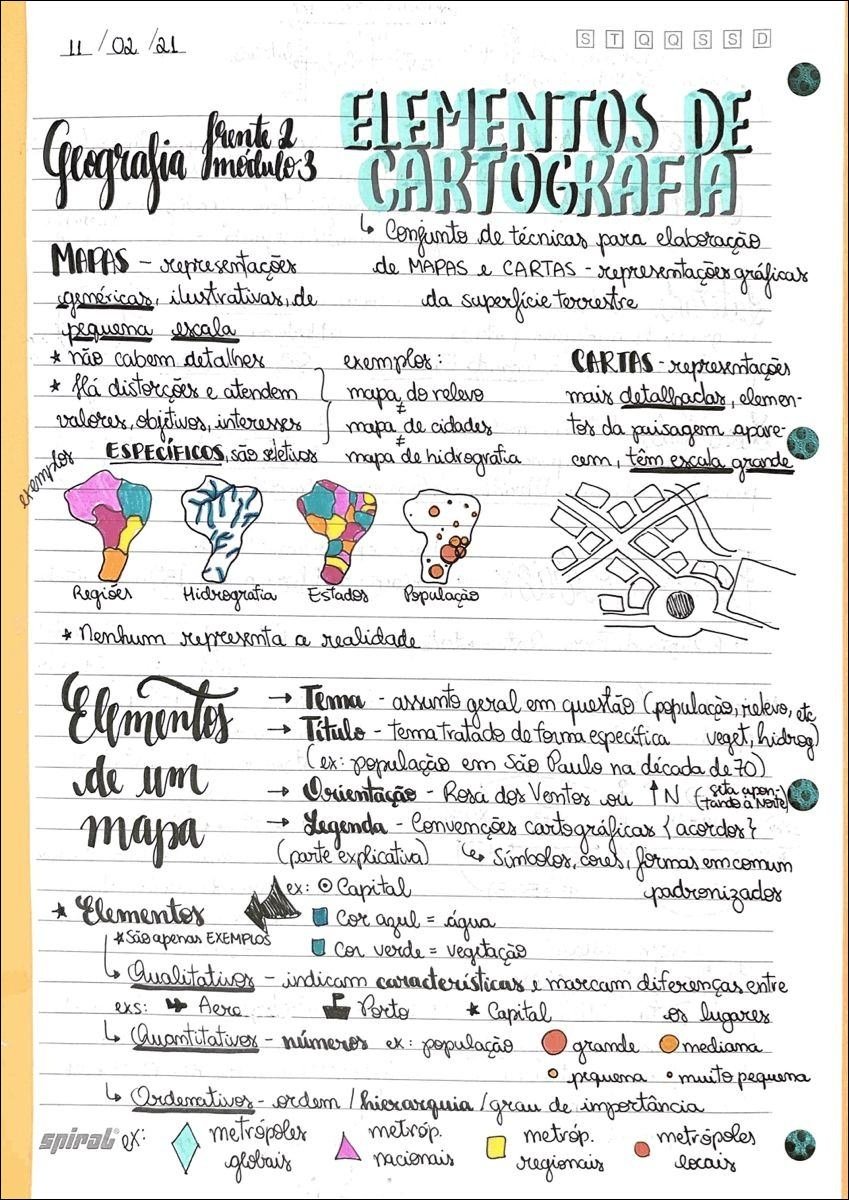 11 / 02 / 21
S T Q Q S S D
Geografia frente 2
módulo 3
ELEMENTOS DE
CARTOGRAFIA
↳ Conjunto de técnicas para elaboração
de MAPAS e CARTAS - representações gráficas
da superfície terrestre
MAPAS - representações
genéricas, ilustrativas, de
pequena escala
* não cabem detalhes
* Há distorções e atendem
valores, objetivos, interesses
ESPECÍFICOS, são seletivos
exemplos:
mapa do relevo
≠
mapa de cidades
≠
mapa de hidrografia
CARTAS - representações
mais detalhadas, elemen-
tos da paisagem apare-
cem, têm escala grande
exemplos
Regiões Hidrografia Estados População
* Nenhum representa a realidade
Elementos
de um
mapa
→ Tema - assunto geral em questão (população, relevo, etc
veget, hidrog)
→ Título - tema tratado de forma específica
(ex: população em São Paulo na década de 70)
→ Orientação - Rosa dos Ventos ou ↑ N (seta apon-
tando a Norte)
→ Legenda - Convenções cartográficas {acordos}
(parte explicativa) ↳ Símbolos, cores, formas em comum
padronizados
ex: ⊙ Capital
* Elementos
Cor azul = água
* São apenas EXEMPLOS
Cor verde = vegetação
↳ Qualitativos - indicam características e marcam diferenças entre
os lugares
exs: ✈ Aero Porto ★ Capital
↳ Quantitativos - números ex: população grande mediana
pequena muito pequena
↳ Ordenativos - ordem / hierarquia / grau de importância
spiral® ex: metrópoles
globais
metróp.
nacionais
metróp.
regionais
metrópoles
locais